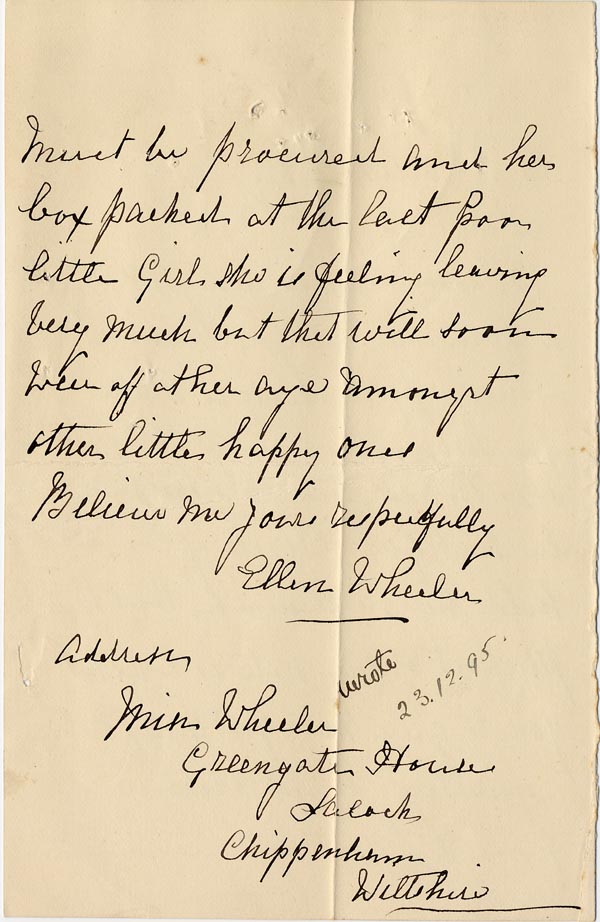 Must be procured and her
box packed at the last poor
little Girl she is feeling leaving
very much but that will soon
wear off at her age amongst
other little happy ones
Believe me yours respectfully
Ellen Wheeler
Address
wrote
23.12.95.
Miss Wheeler
Greengate House
Lacock
Chippenham
Wiltshire